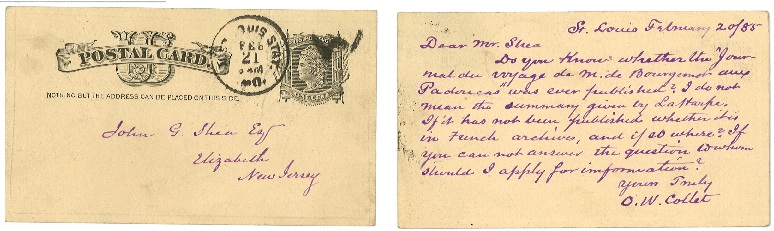 POSTAL CARD
LOUIS STA.
FEB
21
5 AM
MO.
ONE CENT
NOTHING BUT THE ADDRESS CAN BE PLACED ON THIS SIDE.
John G Shea Esq
Elizabeth
New Jersey
St. Louis February 20/85
Dear Mr. Shea
Do you Know whether the "Jour
nal du voyage de M. de Bourgmont aux
Padoucas" was ever published? I do not
mean the summary given by La Harpe.
If it has not been published whether it is
in French archives, and if so where? If
you can not answer the question to whom
should I apply for information?
Yours Truly
O. W. Collet